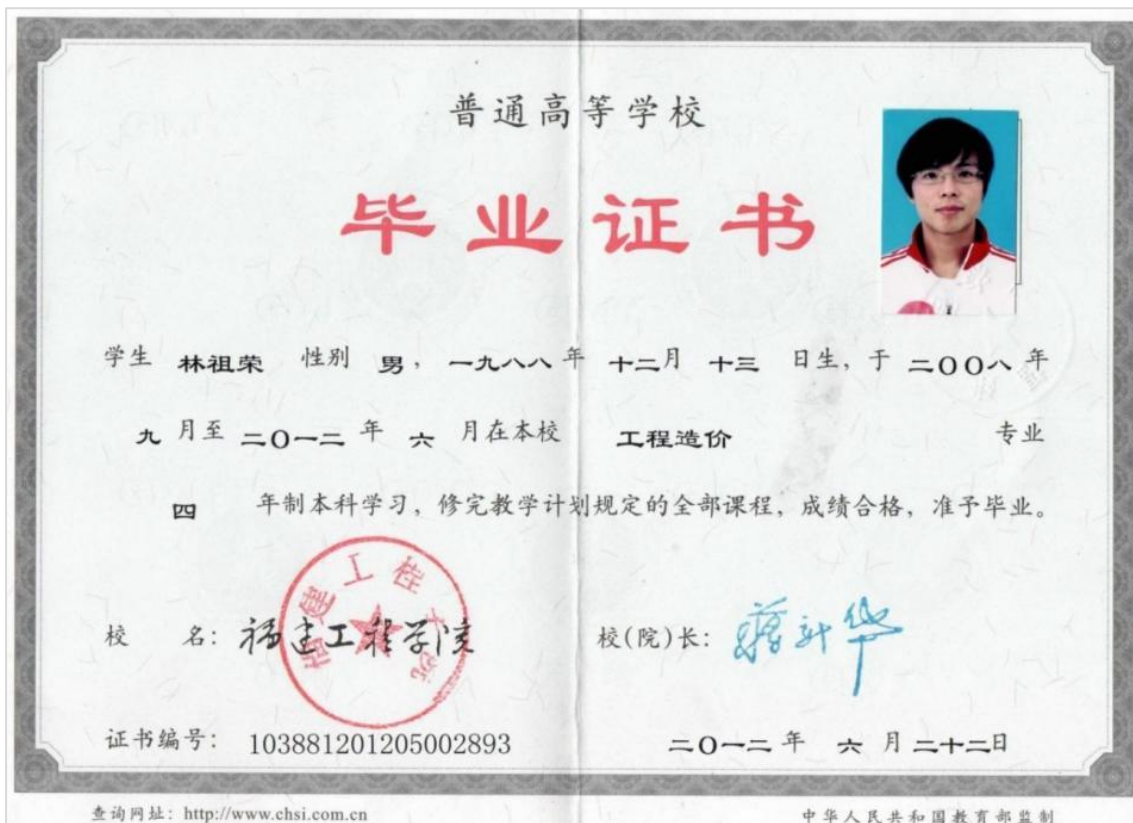 普通高等学校
毕业证书
学生 林祖荣 性别 男，一九八八年 十二月 十三 日生，于 二〇〇八年
九 月至 二〇一二 年 六 月在本校 工程造价 专业
四 年制本科学习，修完教学计划规定的全部课程，成绩合格，准予毕业。
福建工程学院
校 名：福建工程学院 校(院)长：蒋新华
证书编号：103881201205002893 二〇一二 年 六 月 二十二日
查询网址：http://www.chsi.com.cn 中华人民共和国教育部监制